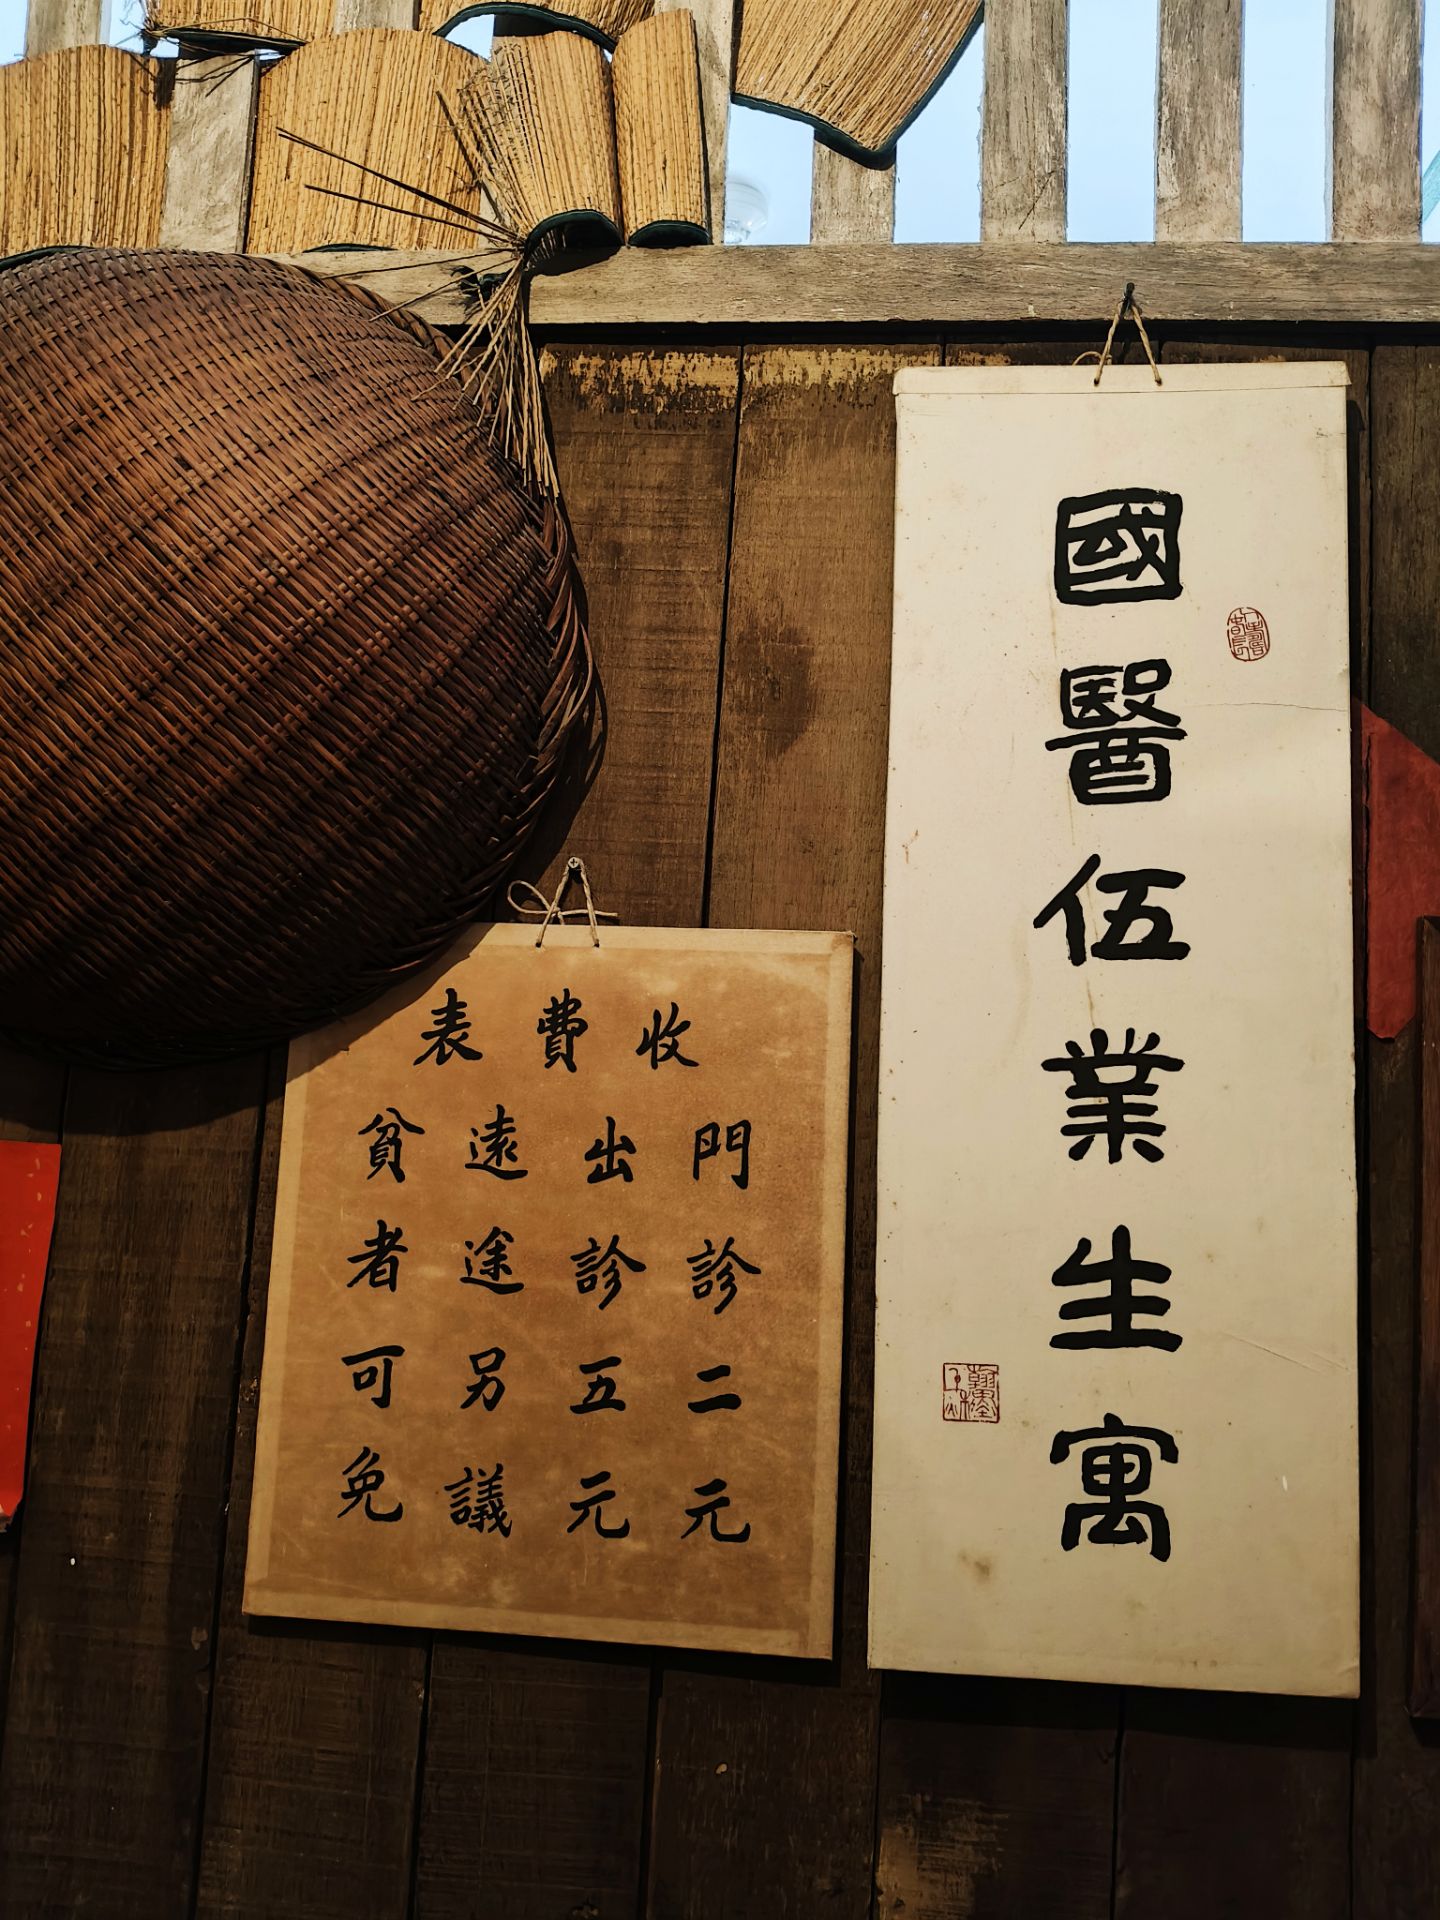 國醫伍業生寓
收費表
門診二元
出診五元
遠途另議
貧者可免